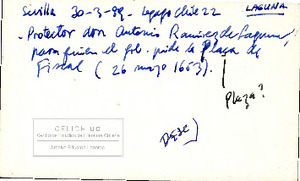 Sevilla 30-3-89. Legajo Chile 22
LAGUNA
- Protector don Antonio Ramirez de Laguna,
para quien el gob. pide la plaça de
Fiscal (26 mayo 1653).
plaza?
CELICH UC